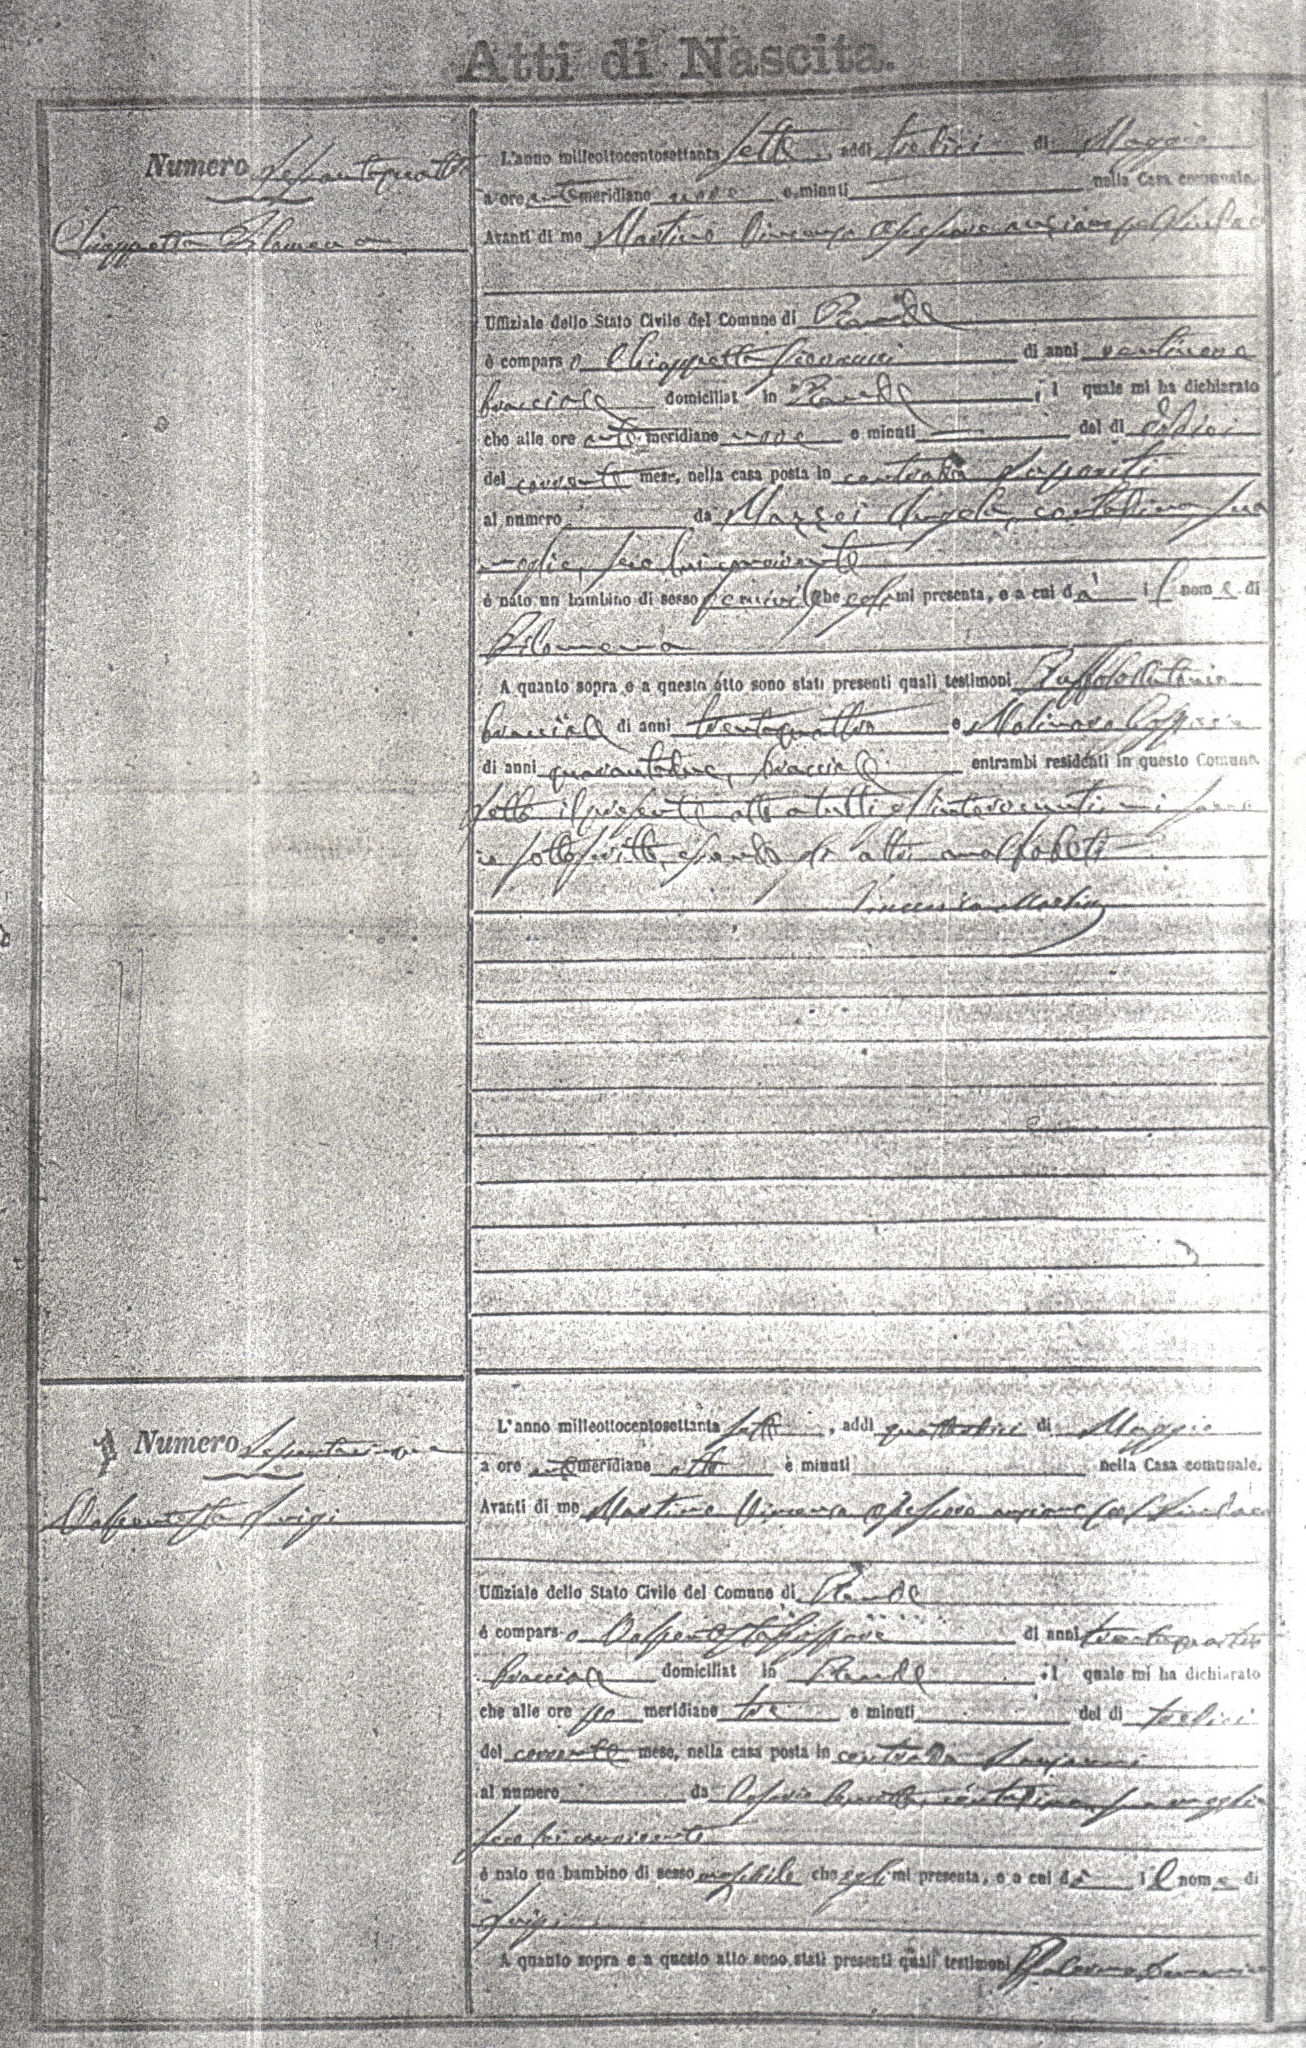 Atti di Nascita.
Numero Sessantaquattro
Chiappetta Filomena
L'anno milleottocentosettanta sette, addì tredici di Maggio
a ore antemeridiane nove e minuti nella Casa comunale.
Avanti di me Mastino Vincenzo Assessore anziano pel Sindaco
Uffiziale dello Stato Civile del Comune di Rende
è comparso Chiappetta Giovanni di anni ventinove
bracciale domiciliat in Rende il quale mi ha dichiarato
che alle ore ante meridiane nove e minuti del dì dodici
del corrente mese, nella casa posta in contrada
al numero da Mazzei Angela, contadina sua
moglie, seco lui convivente
è nato un bambino di sesso feminile che egli mi presenta, e a cui dà il nome di
Filomena
A quanto sopra e a questo atto sono stati presenti quali testimoni Ruffolo Antonio
bracciale di anni trentaquattro e Molinaro
di anni quarantadue, bracciale entrambi residenti in questo Comune.
Letto il presente atto a tutti gl'intervenuti mi sono
io sottoscritto, essendo gli altri analfabeti
Vincenzo Mastino
Numero Sessantacinque
Luigi
L'anno milleottocentosettanta sette, addì quattordici di Maggio
a ore antemeridiane otto e minuti nella Casa comunale.
Avanti di me Mastino Vincenzo Assessore anziano pel Sindaco
Uffiziale dello Stato Civile del Comune di Rende
è comparso Giuseppe di anni trentaquattro
bracciale domiciliat in Rende il quale mi ha dichiarato
che alle ore po meridiane tre e minuti del dì tredici
del corrente mese, nella casa posta in contrada
al numero da contadina, sua moglie
seco lui convivente
è nato un bambino di sesso maschile che egli mi presenta, e a cui dà il nome di
Luigi
A quanto sopra e a questo atto sono stati presenti quali testimoni